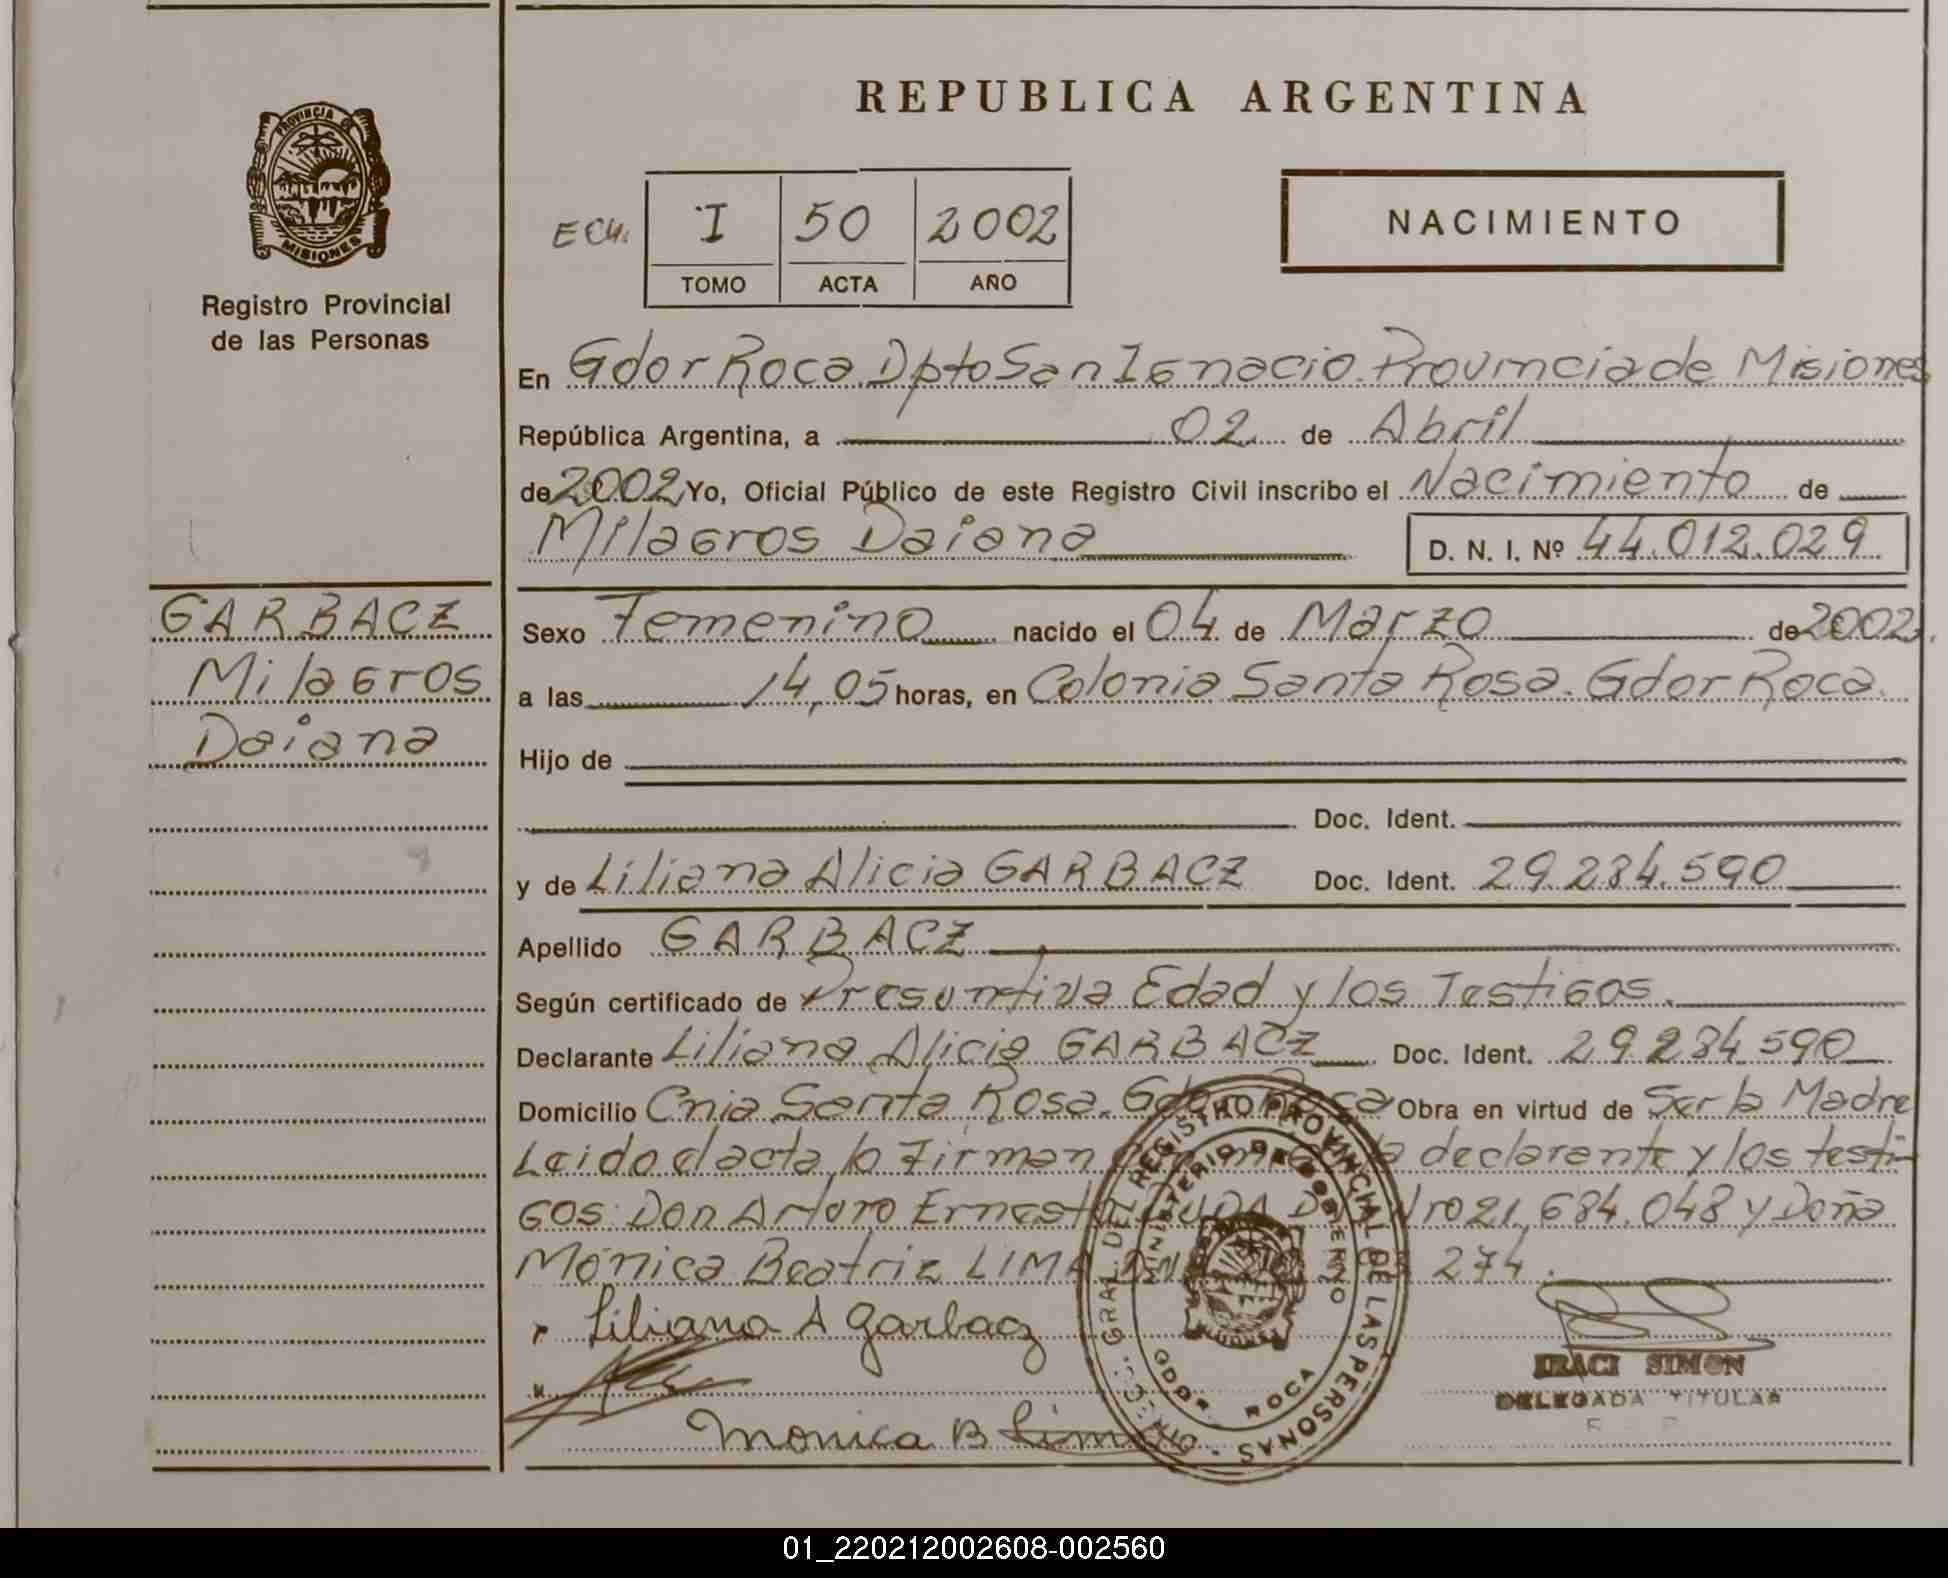 REPUBLICA ARGENTINA
PROVINCIA DE
MISIONES
Registro Provincial
de las Personas
ECH.
I 50 2002
TOMO ACTA AÑO
NACIMIENTO
En Gdor Roca Dpto San Ignacio Provincia de Misiones
República Argentina, a 02 de Abril
de 2002 Yo, Oficial Público de este Registro Civil inscribo el Nacimiento de
Milagros Daiana D. N. I. Nº 44.012.029
GARBACZ
Milagros
Daiana
Sexo Femenino nacido el 04 de Marzo de 2002
a las 14,05 horas, en Colonia Santa Rosa. Gdor Roca
Hijo de
Doc. Ident.
y de Liliana Alicia GARBACZ Doc. Ident. 29.284.590
Apellido GARBACZ
Según certificado de Presuntiva Edad y los Testigos.
Declarante Liliana Alicia GARBACZ Doc. Ident. 29.284.590
Domicilio Cnia Santa Rosa. Gdor Roca Obra en virtud de Ser la Madre
Leido el acta lo Firman declarante y los testi-
gos: Don Arturo Ernesto Nro 21.684.048 y Doña
Mónica Beatriz LIMA 274.
Liliana A Garbacz
Monica B Lima
DIRECC. GRAL. DEL REGISTRO PROVINCIAL DE LAS PERSONAS
MINISTERIO DE GOBIERNO
GDOR. ROCA
IRACI SIMON
DELEGADA TITULAR
01_220212002608-002560